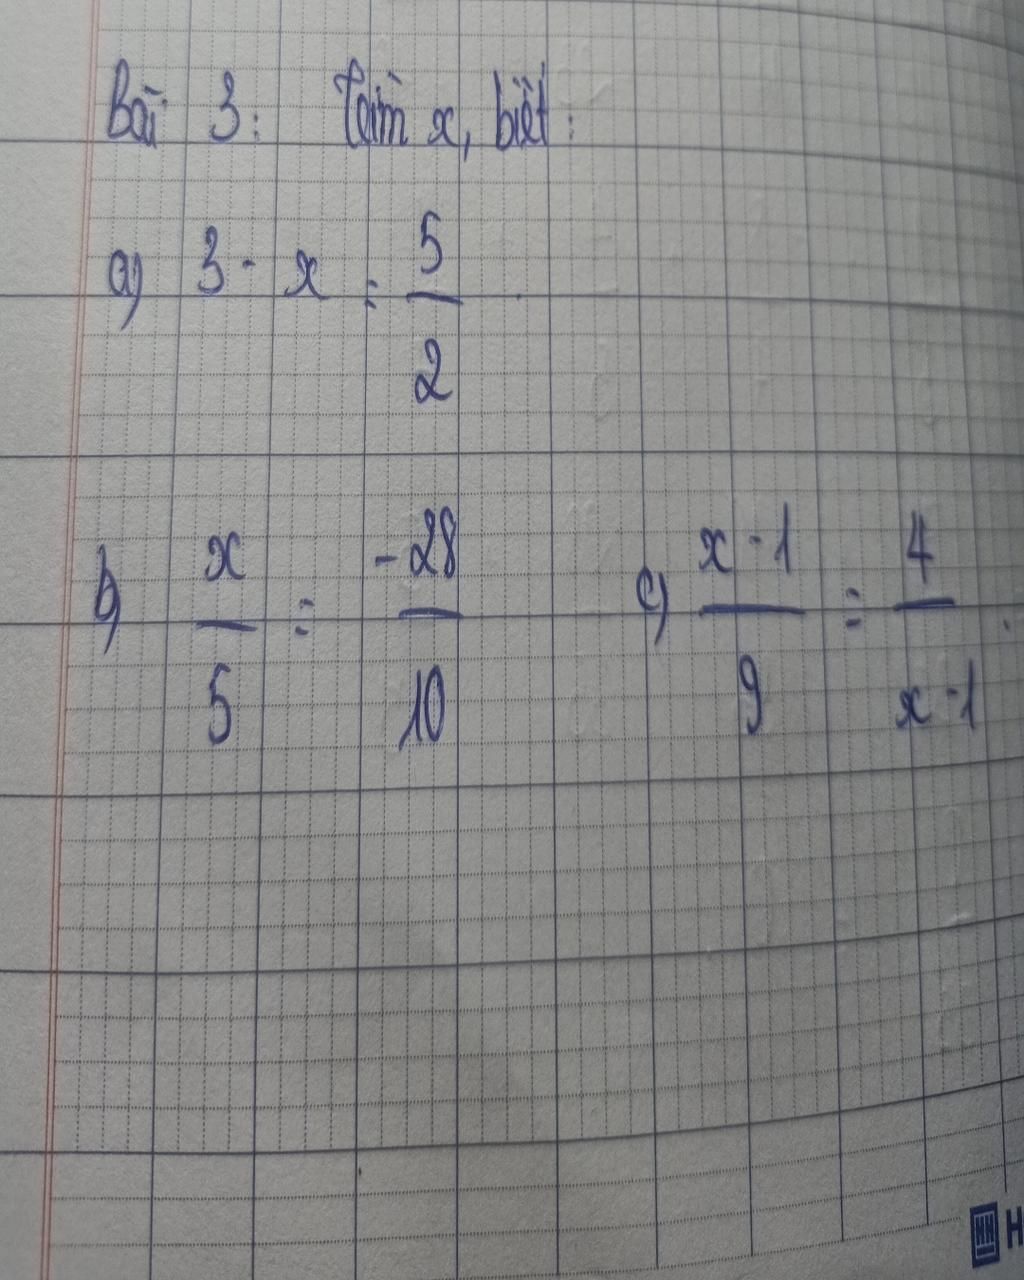 Bài 3: Tìm x, biết:
a) 3 - x = 5/2
b) x/5 = -28/10 c) x-1/9 = 4/x-1
H